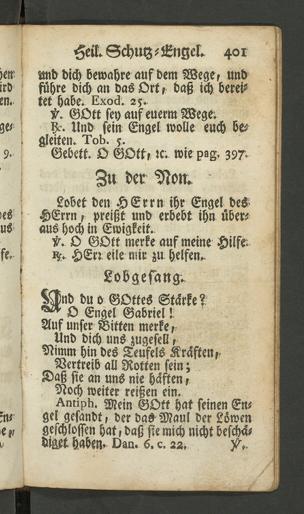 Heil. Schutz-Engel. 401
und dich bewahre auf dem Wege, und
führe dich an das Ort, daß ich berei-
tet habe. Exod. 25.
℣. GOtt sey auf euerm Wege.
℞. Und sein Engel wolle euch be-
gleiten. Tob. 5.
Gebett. O GOtt, ꝛc. wie pag. 397.
Zu der Non.
Lobet den HErrn ihr Engel des
HErrn, preißt und erhebt ihn über-
aus hoch in Ewigkeit.
℣. O GOtt merke auf meine Hilfe.
℞. HErr eile mir zu helfen.
Lobgesang.
Und du o GOttes Stärke?
O Engel Gabriel!
Auf unser Bitten merke,
Und dich uns zugesell,
Nimm hin des Teufels Kräften,
Vertreib all Rotten sein;
Daß sie an uns nie häften,
Noch weiter reißen ein.
Antiph. Mein GOtt hat seinen En-
gel gesandt, der das Maul der Löwen
geschlossen hat, daß sie mich nicht beschä-
diget haben. Dan. 6. c. 22. ℣.